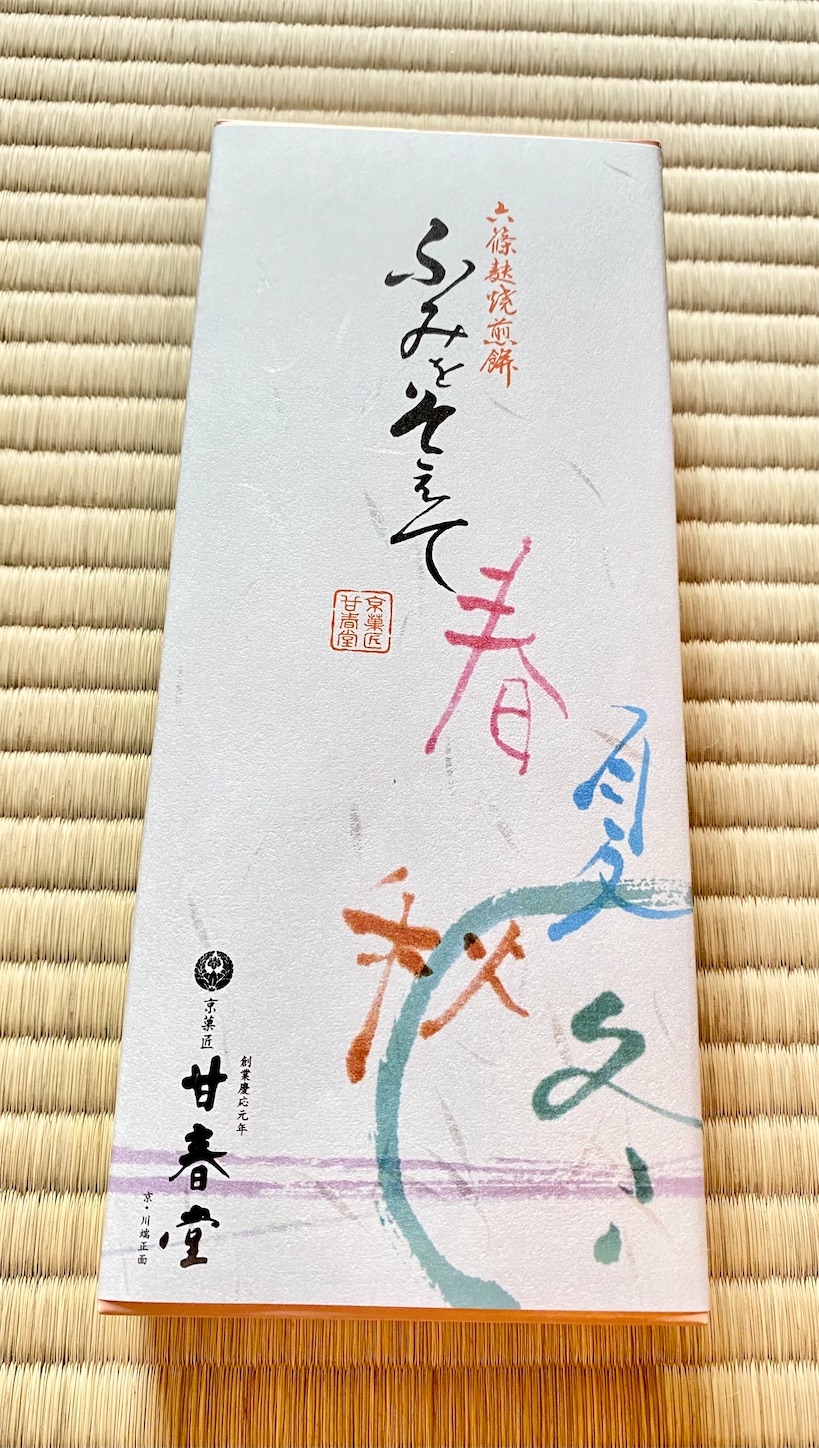 六條麸焼煎餅
ふみをそえて
京菓匠
甘春堂
春
夏
秋
冬
京菓匠
創業慶応元年
甘春堂
京・川端正面